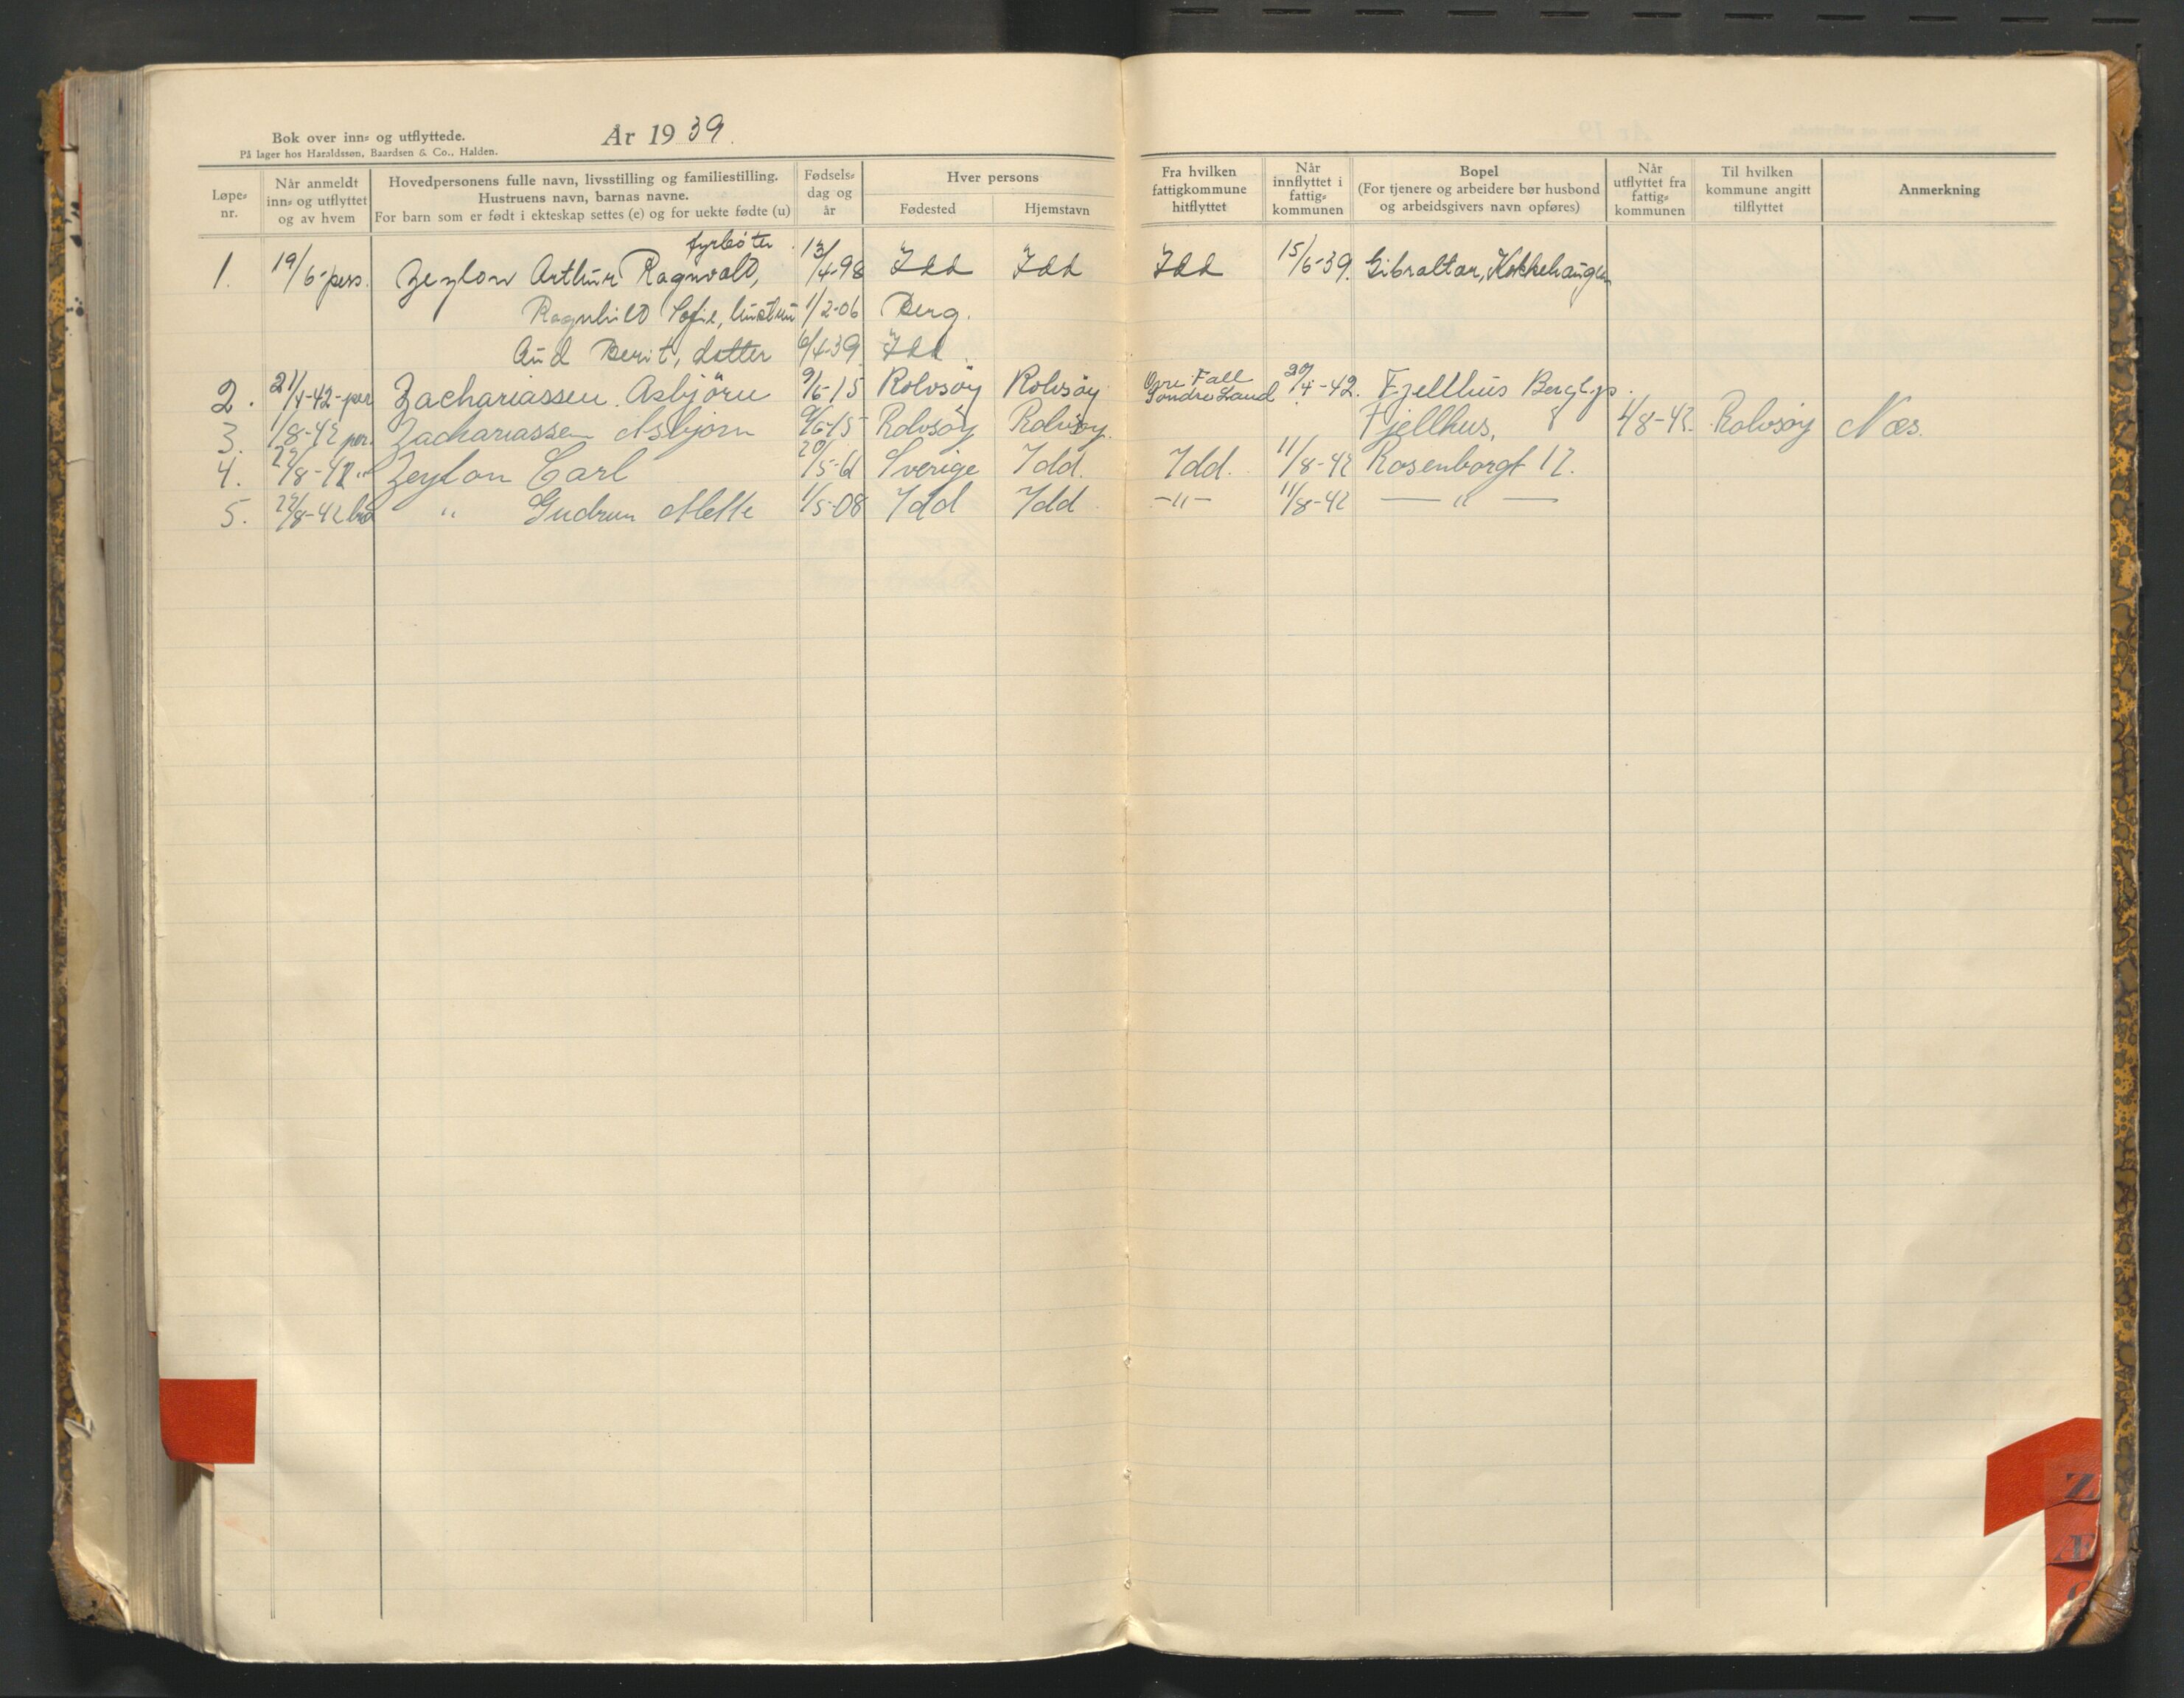 Bok over inn- og utflyttede.
På lager hos Haraldssøn, Baardsen & Co., Halden.
År 1939.
Løpe-
nr.
Når anmeldt
inn- og utflyttet
og av hvem
Hovedpersonens fulle navn, livsstilling og familiestilling.
Hustruens navn, barnas navne.
For barn som er født i ekteskap settes (e) og for uekte fødte (u)
Fødsels-
dag og
år
Hver persons
Fødested
Hjemstavn
Fra hvilken
fattigkommune
hitflyttet
Når
innflyttet i
fattig-
kommunen
Bopel
(For tjenere og arbeidere bør husbond
og arbeidsgivers navn opføres)
Når
utflyttet fra
fattig-
kommunen
Til hvilken
kommune angitt
tilflyttet
Anmerkning
fyrbøter
1. 19/6-pers. Zeylon Arthur Ragnvald, 13/4-98 Idd Idd Idd 15/6-39. Gibraltar, Kokkehaugen
Ragnhild Sofie, hustru 1/2-06 Berg.
Aud Berit, datter 6/4-39 Idd.
2. 21/4-42-per Zachariassen Asbjörn 9/6-15 Rolvsöy Rolvsöy Søndre Land 20/4-42. Fjellhus
3. 1/8-42 per. Zachariassen Asbjørn 9/6-15 Rolvsøy Rolvsøy. Fjellhus, 4/8-42 Rolvsøy Næs.
4. /8-42 " Zeylon Carl 20/5-61 Sverige Idd. Idd. 11/8-42 Rosenborgt 12.
5. /8-42 " Gudrun Mette 1/5-08 Idd Idd -"- 11/8-42 — " —
Z
Æ